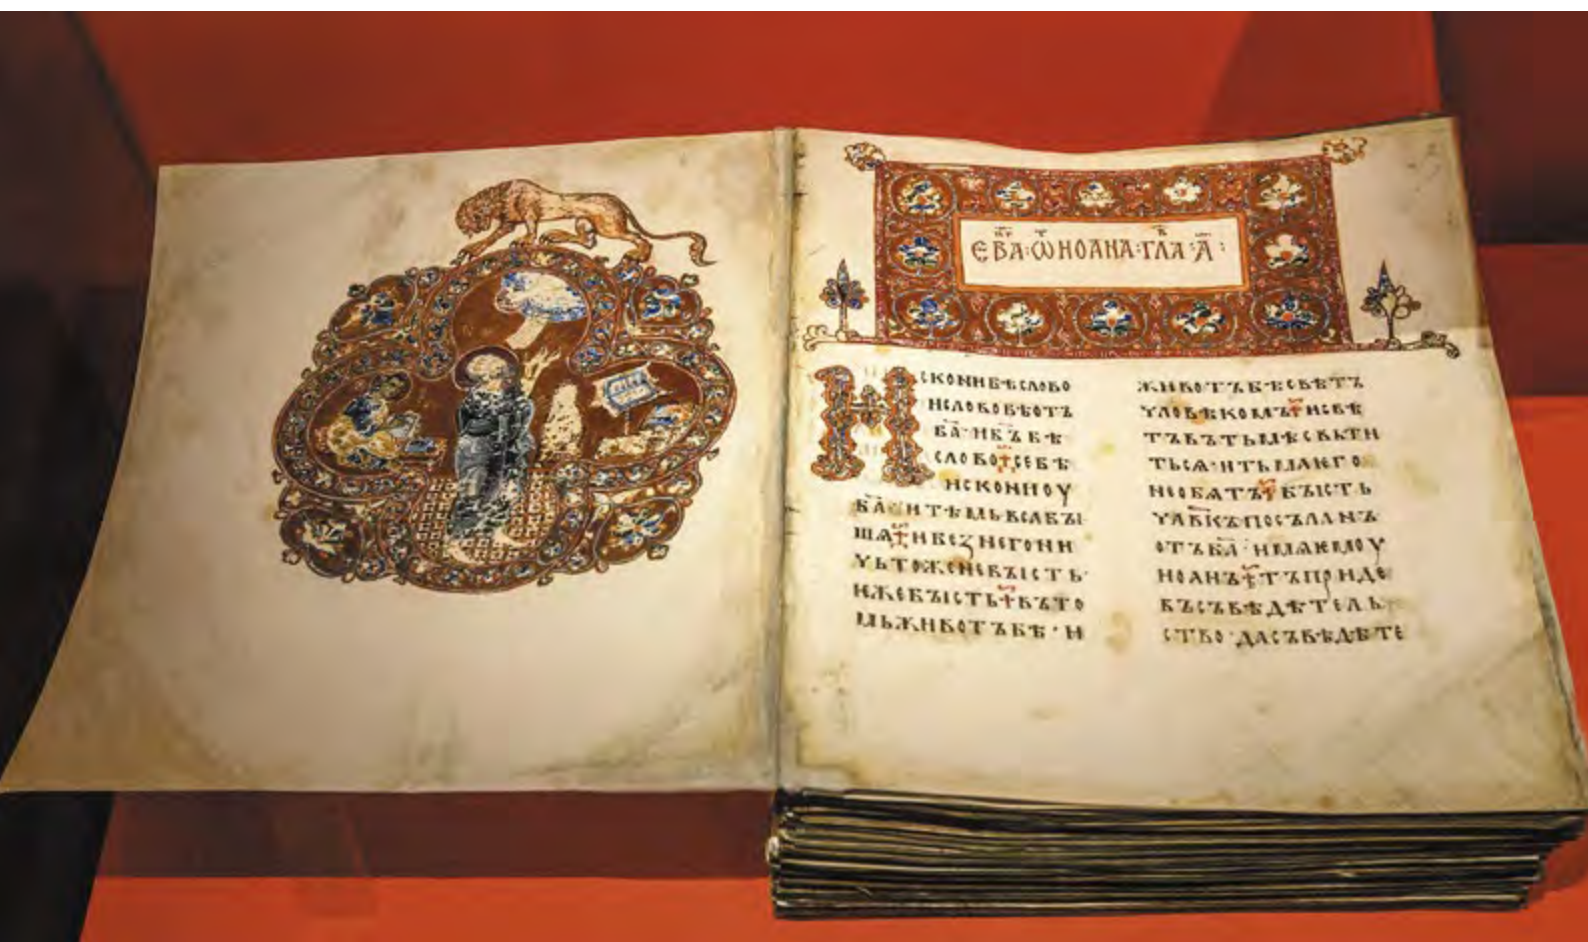 ЄВА҃: Ѡ ИОАНА· ГЛА А҃:
ИСКОНИ БѢ СЛОВО
И СЛОВО БѢ ОТЪ
Б҃А · И Б҃Ъ БѢ
СЛОВО СЕ БѢ
ИСКОНИ ОУ
Б҃А И ТѢМЬ ВСѦ БЪІ
ШѦ И БЕЗ НЕГО НИ
ЧЬТОЖЕ НЕ БЪІСТЬ·
ИЖЕ БЪІСТЬ ВЪ ТО
МЬ ЖИВОТЪ БѢ · И
ЖИВОТЪ БѢ СВѢТЪ
ЧЛОВѢКОМЪ И СВѢ
ТЪ ВЪ ТЬМѢ СВЬТИ
ТЬСѦ · И ТЬМА ѤГО
НЕ ОБѦТЪ БЪІСТЬ
ЧЛ҃ВКЪ ПОСЪЛАНЪ
ОТЪ Б҃А · ИМѦ ѤМОУ
ИОАНЪ ТЪ ПРИДЕ
ВЪ СЪВѢДѢТЕЛЬ
СТВО · ДА СЪВѢДѢТЕ